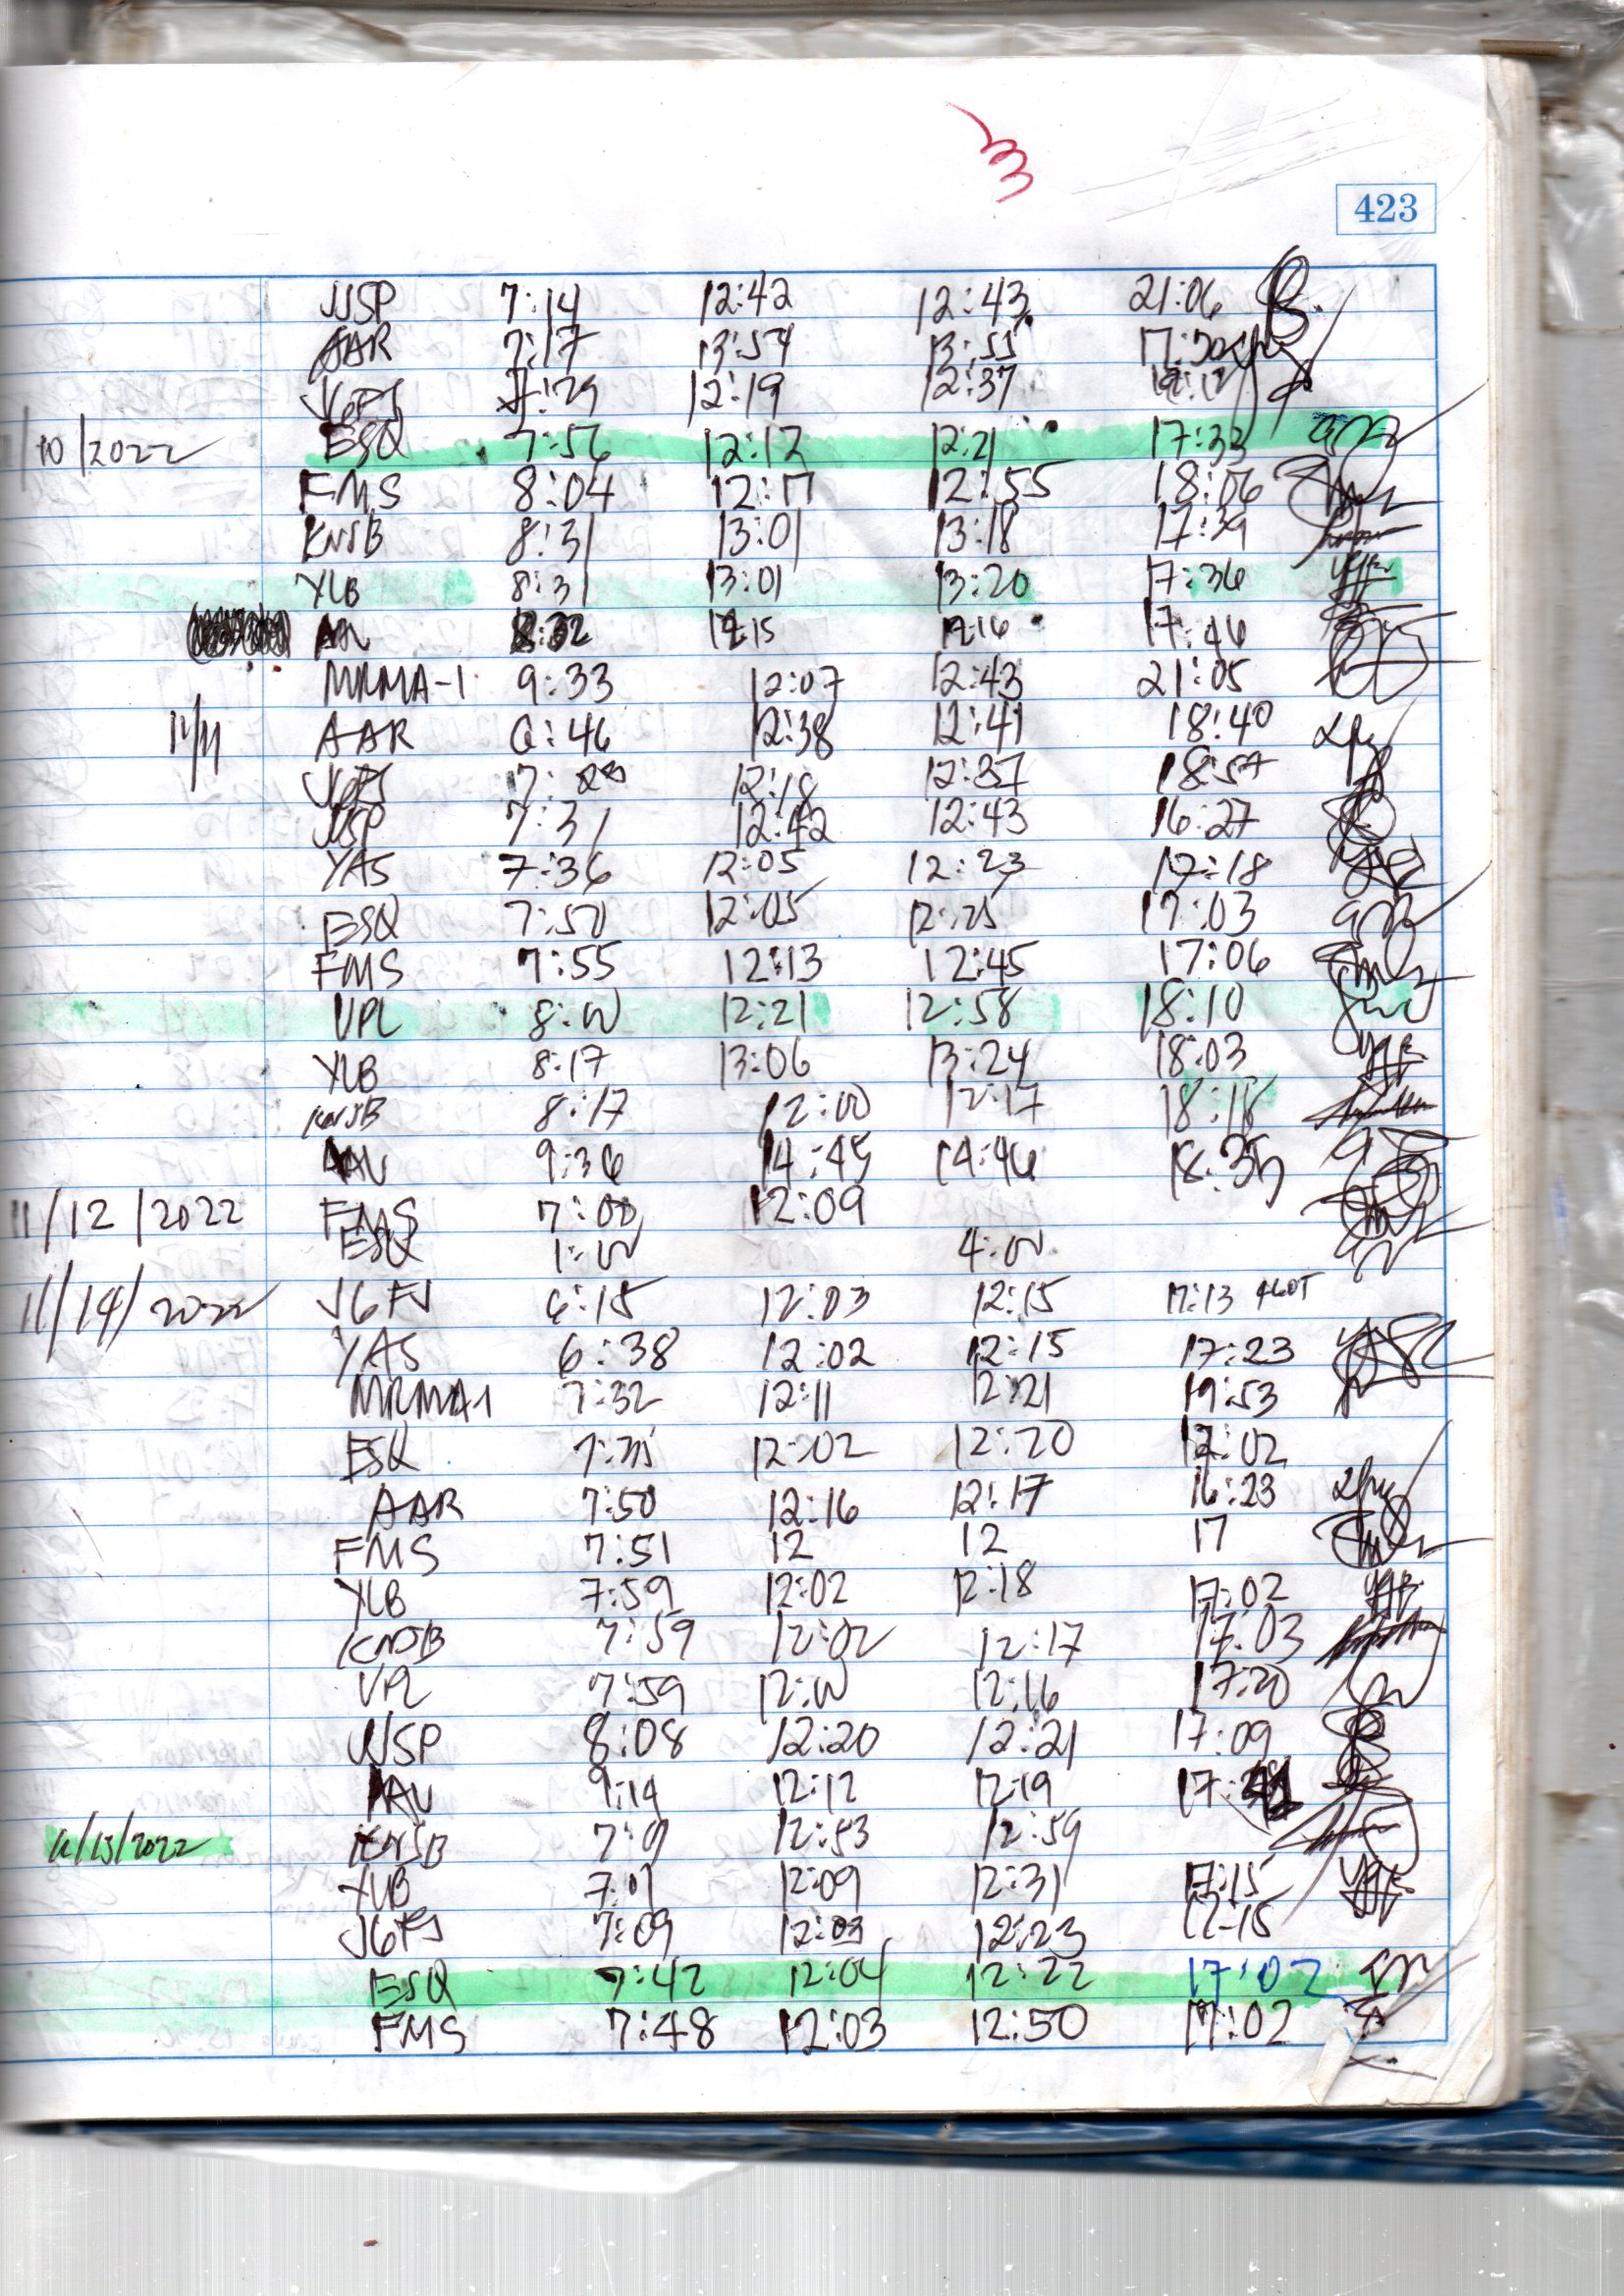 423
JJSP 7:14 12:42 12:43 21:06
AAR 7:17 13:54 13:55
JGFJ 7:29 12:19 12:37
/10/2022 ESQ 7:56 12:12 12:21 17:33
FMS 8:04 12:17 12:55 18:06
KNJB 8:31 13:01 13:18 17:39
YLB 8:31 13:01 13:20 17:36
17:46
MRMA-1 9:33 12:07 12:43 21:05
11/11 AAR 6:46 12:38 12:41 18:40
JGFJ 7: 12:18 12:37 18:57
JJSP 7:31 12:42 12:43 16:27
YAS 7:36 12:05 12:23 17:18
ESQ 7:50 12:05 12:25 17:03
FMS 7:55 12:13 12:45 17:06
VPL 8:00 12:21 12:58 18:10
YLB 8:17 13:06 13:24 18:03
KNJB 8:17 12:00 12:17 18:18
9:36 14:45 14:46 18:35
11/12/2022 FMS 7:00 12:09
ESQ 1:00 4:00
11/14/2022 JGFJ 6:15 12:03 12:15 17:13
YAS 6:38 12:02 12:15 17:23
MRMA-1 7:32 12:11 12:21 19:53
ESQ 12:02 12:20 17:02
AAR 7:50 12:16 12:17 16:23
FMS 7:51 12 12 17
YLB 7:59 12:02 12:18 17:02
KNJB 7:59 12:02 12:17 17:03
VPL 7:59 12:00 12:16 17:20
JJSP 8:08 12:20 12:21 17:09
9:14 12:12 12:19 17:
11/15/2022 KNJB 7:01 12:53 12:59
YLB 7:01 12:09 12:31 17:15
JGFJ 7:09 12:03 12:23 17-15
ESQ 7:42 12:04 12:22 17:02
FMS 7:48 12:03 12:50 17:02